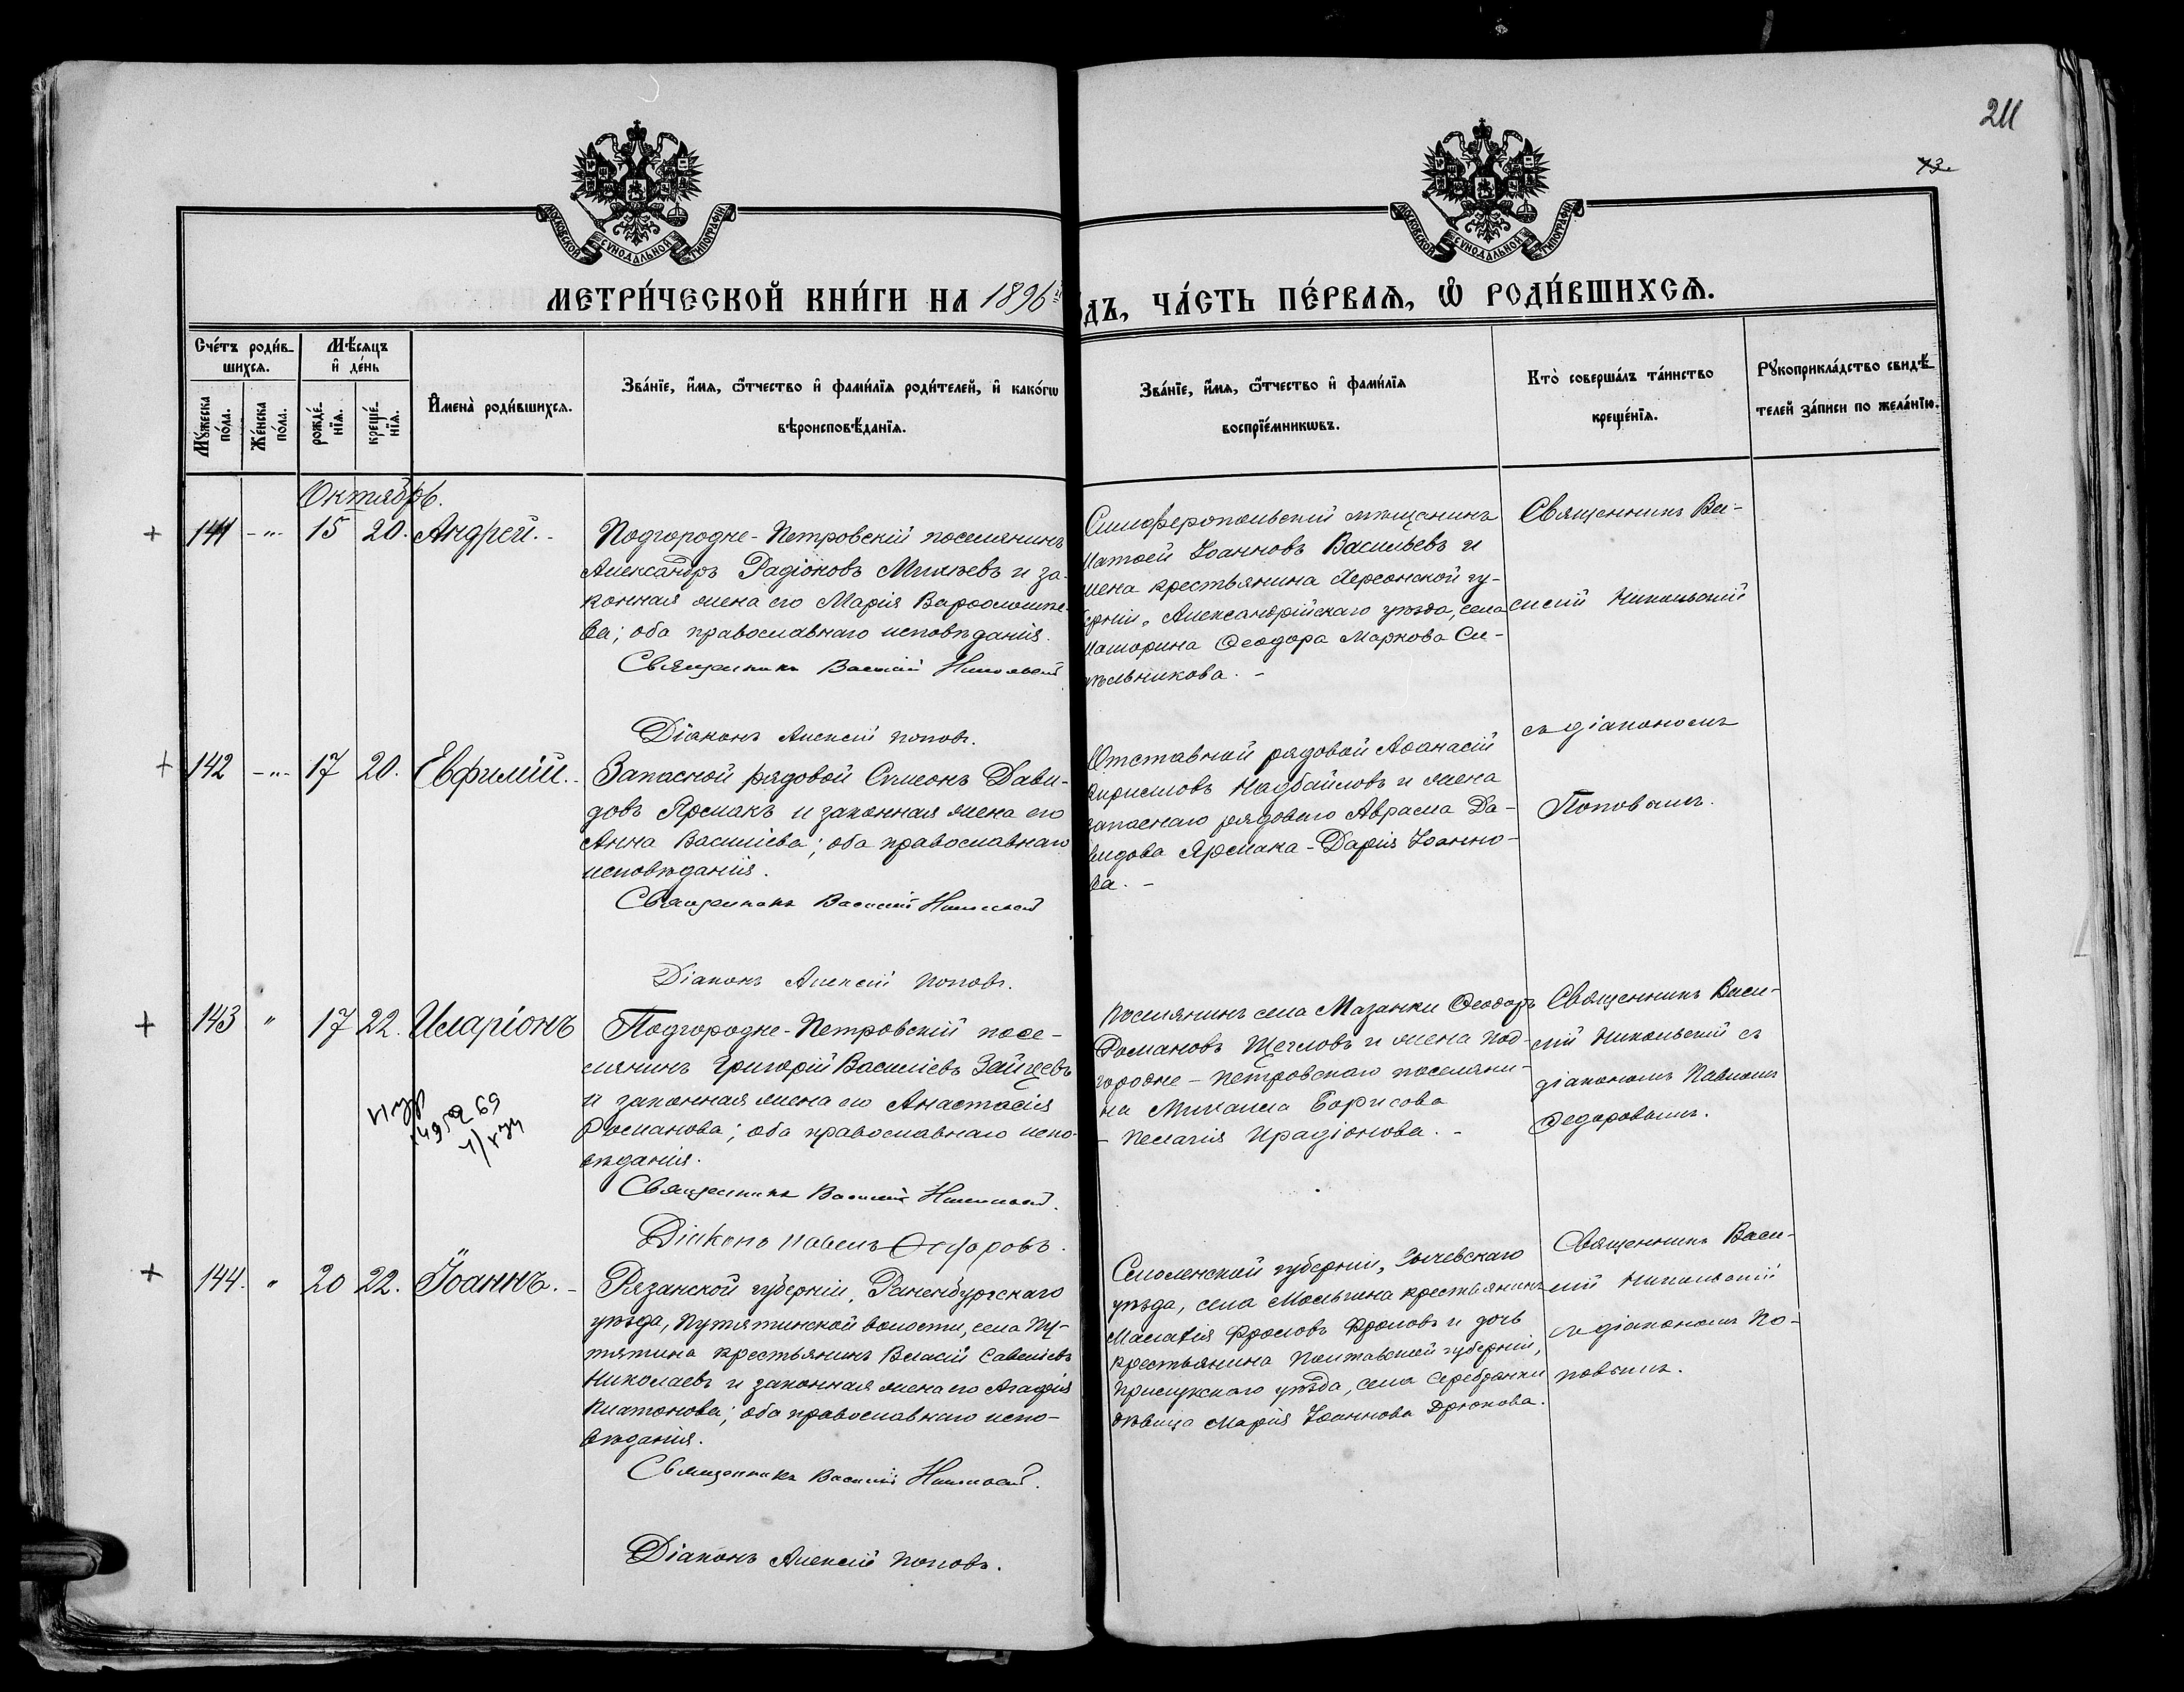 211
73.
МОСКОВСКОЙ СУНОДАЛЬНОЙ ТИПОГРАФІИ
МОСКОВСКОЙ СУНОДАЛЬНОЙ ТИПОГРАФІИ
МЕТРИ́ЧЕСКОЙ КНИ́ГИ НА 1896 й
ДЪ, ЧА́СТЬ ПЕ́РВАЯ, Ѡ РОДИ́ВШИХСЯ.
Сче́тъ роди́в-
шихся.
Мꙋ́жеска по́ла.
Же́нска по́ла.
Мѣ́сяцъ
и҆ де́нь
рожде́-
нїя.
креще́-
нїя.
И҆мена̀ роди́вшихся.
Зва́нїе, и҆́мя, ѻ҆́тчество и҆ фами́лїя роди́телей, и҆ како́гѡ
вѣроисповѣ́данїя.
Зва́нїе, и҆́мя, ѻ҆́тчество и҆ фами́лїя
воспрїе́мникѡвъ.
Кто̀ соверша́лъ та́инство
креще́нїя.
Рꙋкоприкла́дство свидѣ́-
телей за́писи по жела́нїю.
Октябрь.
+ 141 -"- 15 20. Андрей. -
Подгородне-Петровскій поселянинъ
Александръ Радіоновъ Михѣевъ и за-
конная жена его Марія Варѳоломее-
ва; оба православнаго исповѣданія.
Священникъ Василій Никольскій
Діаконъ Алексій Поповъ.
Симферопольскій мѣщанинъ
Матѳей Іоанновъ Васильевъ и
жена крестьянина Херсонской гу-
берніи, Александрійскаго уѣзда, села
Ѳеодора Маркова Си-
тельникова. -
Священникъ Ва-
силій Никольскій
съ діакономъ
Поповымъ.
+ 142 -"- 17 20. Евфимій. -
Запасной рядовой Сѵмеонъ Дави-
довъ Ярмакъ и законная жена его
Анна Василіева; оба православнаго
исповѣданія.
Священникъ Василій Никольскій
Діаконъ Алексій Поповъ.
Отставной рядовой Аѳанасій
Кирилловъ Надбайловъ и жена
запаснаго рядового Авраама Да-
видова Ярмака - Дарія Іоанно-
ва. -
+ 143 " 17 22. Иларіонъ
Подгородне-Петровскій посе-
лянинъ Григорій Василіевъ Зайцевъ
и законная жена его Анастасія
Романова; оба православнаго испо-
вѣданія.
Священникъ Василій Никольскій.
Діаконъ Павелъ Ѳедоровъ.
Поселянинъ села Мазанки Ѳеодоръ
Романовъ Щегловъ и жена под-
городне-Петровскаго поселяни-
на Михаила Борисова
- Пелагія Ирадіонова. -
Священникъ Васи-
лій Никольскій съ
діакономъ Павломъ
Ѳедоровымъ.
+ 144. " 20 22. Іоаннъ. -
Рязанской губерніи, Раненбургскаго
уѣзда, Путятинской волости, села Пу-
тятина крестьянинъ Власій Савеліевъ
Николаевъ и законная жена его Агафія
Платонова; оба православнаго испо-
вѣданія.
Священникъ Василій Никольскій.
Діаконъ Алексій Поповъ.
Смоленской губерніи, Сычевскаго
уѣзда, села крестьянинъ
Фроловъ Фроловъ и дочь
крестьянина Полтавской губерніи,
Прилукскаго уѣзда, села Серебрянки
дѣвица Марія Іоаннова Дрюкова.
Священникъ Васи-
лій Никольскій
съ діакономъ По-
повымъ.